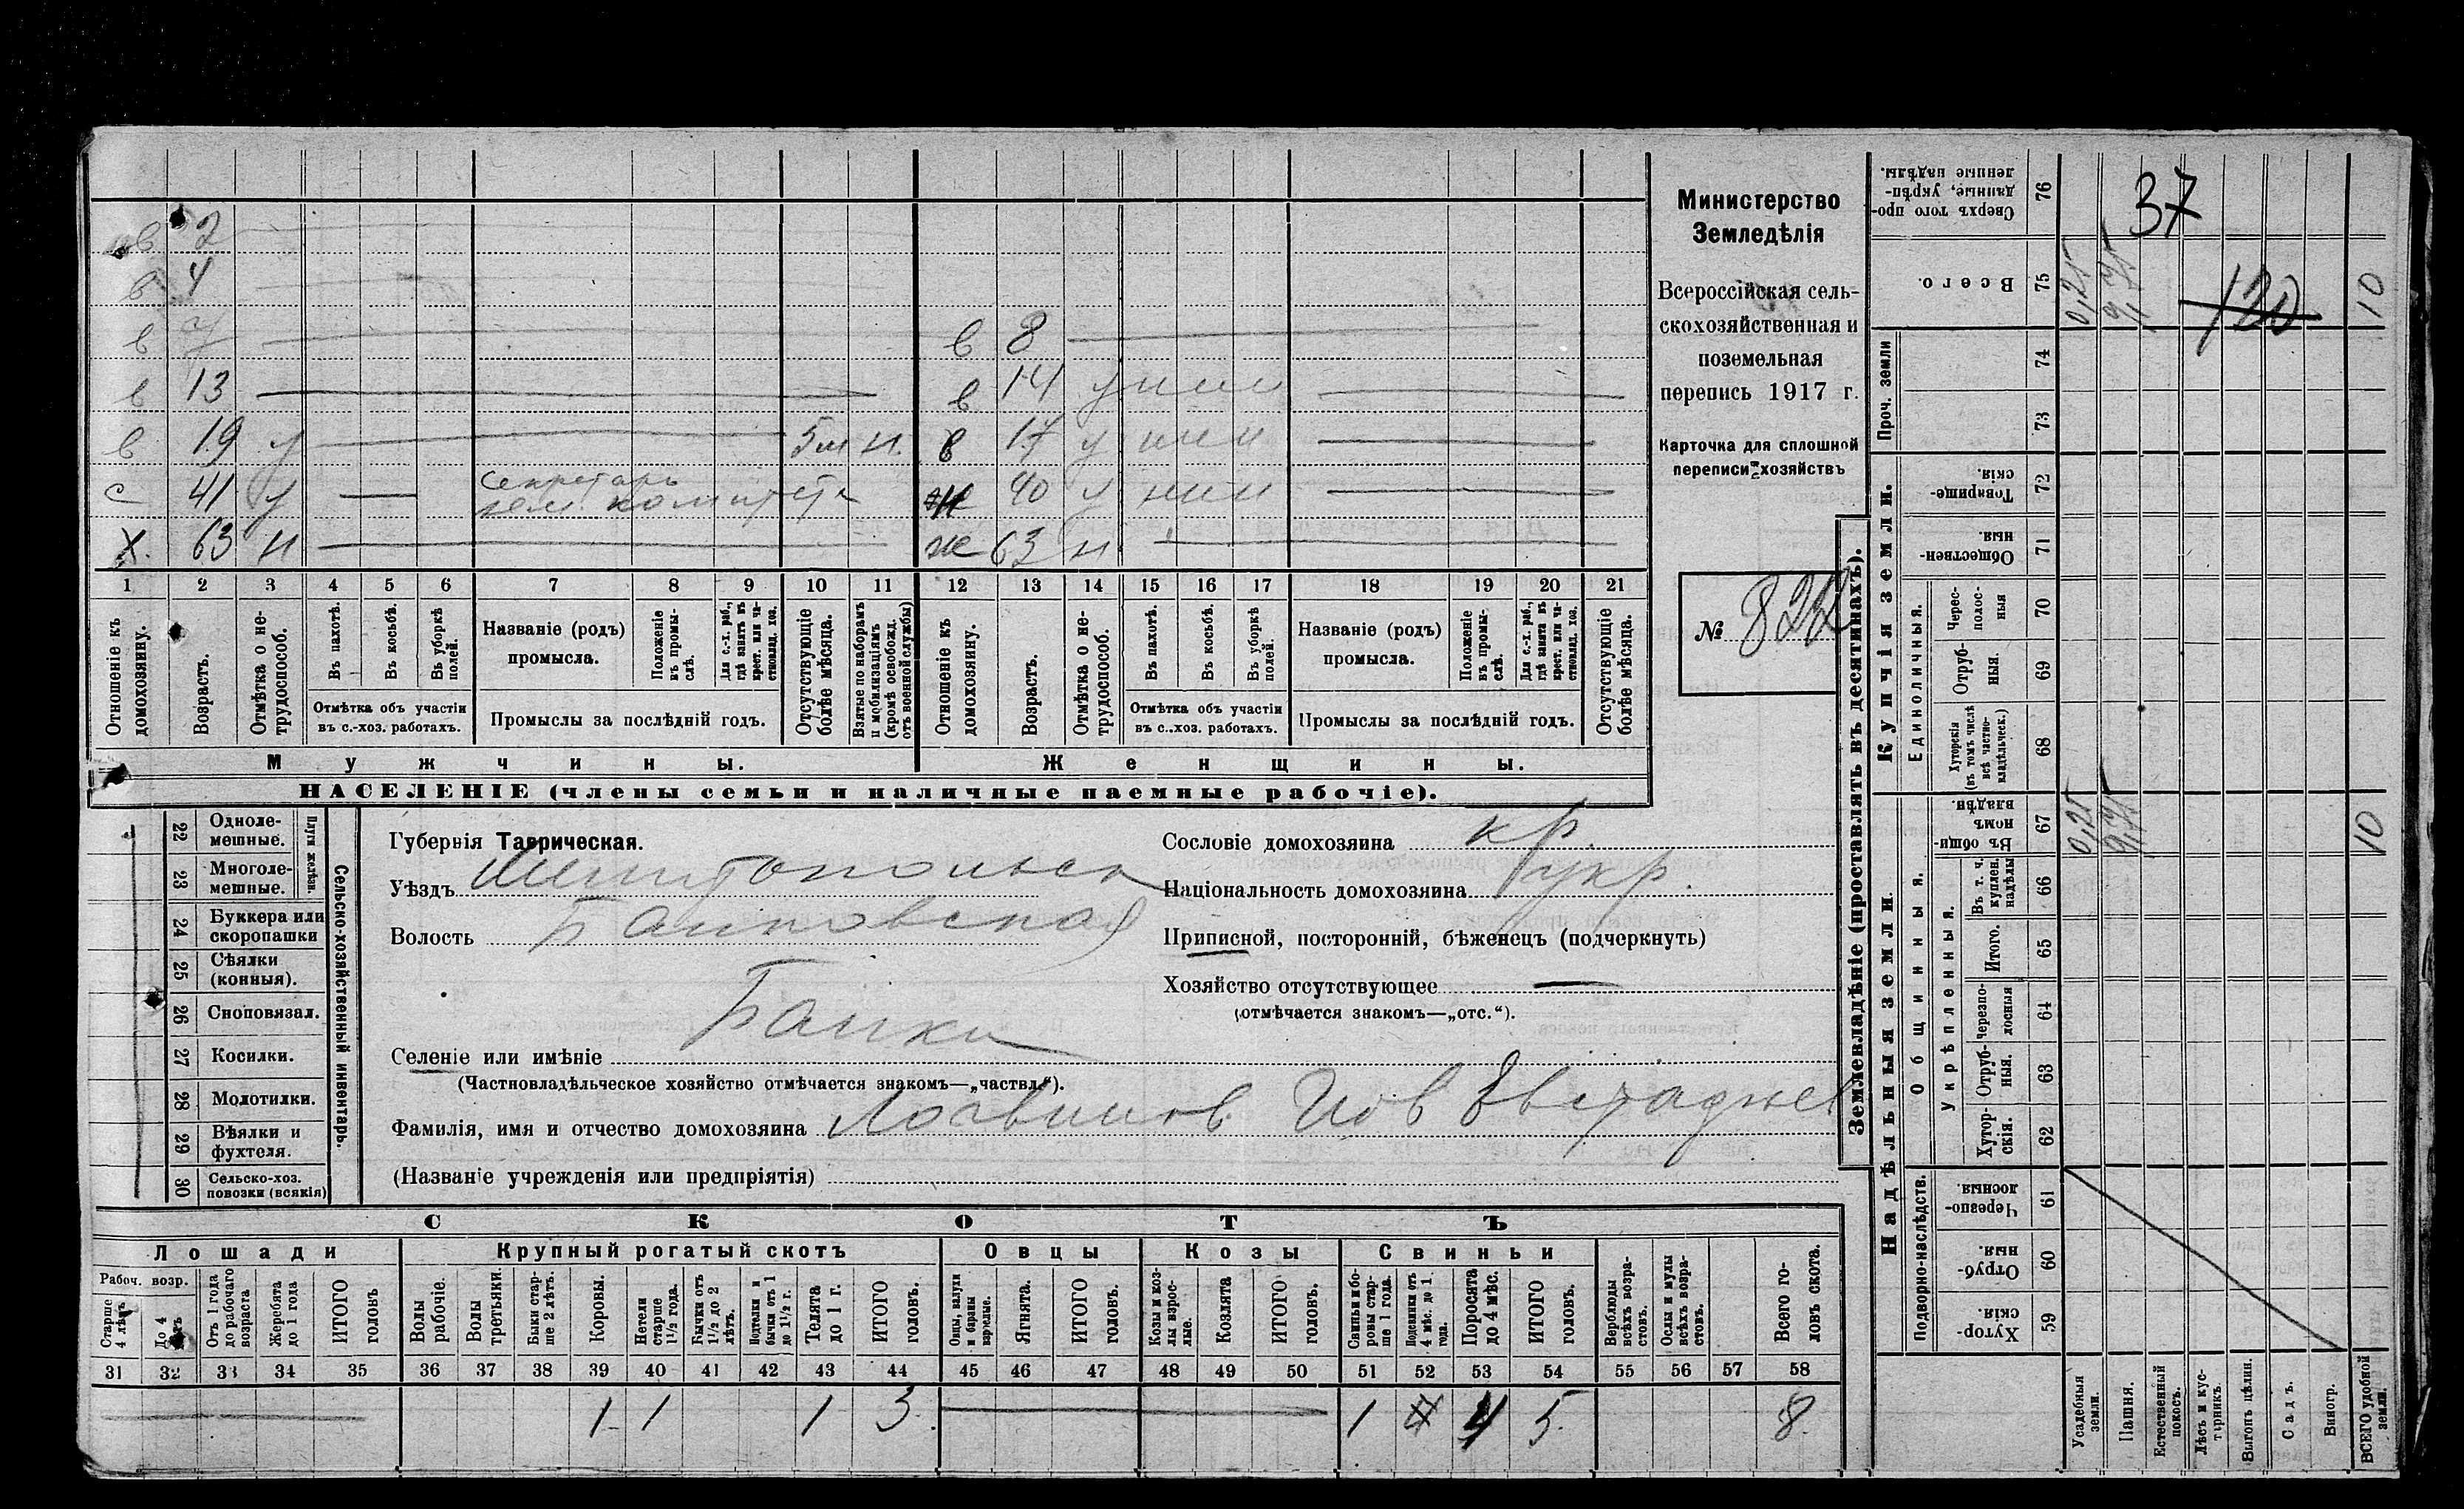 в 2
в 4
в 7 в 8
в 13 в 14 у нии
в 19 у 5 м н. в 17 у нии
с 41 у секретарь
зем. комитета 40 у нии
х. 63 н ж 63 н
1 2 3 4 5 6 7 8 9 10 11 12 13 14 15 16 17 18 19 20 21
Отношеніе къ домохозяину.
Возрастъ.
Отмѣтка о не-трудоспособ.
Въ пахотѣ.
Въ косьбѣ.
Въ уборкѣ полей.
Отмѣтка объ участіи
въ с.-хоз. работахъ.
Названіе (родъ)
промысла.
Положеніе въ промы-слѣ.
Для с.-х. раб., гдѣ занятъ въ крест. или ча-стновлад. хоз.
Промыслы за послѣдній годъ.
Отсутствующіе болѣе мѣсяца.
Взятые по наборамъ и мобилизаціямъ (кромѣ освобожд. отъ военной службы)
Отношеніе къ домохозяину.
Возрастъ.
Отмѣтка о не-трудоспособ.
Въ пахотѣ.
Въ косьбѣ.
Въ уборкѣ полей.
Отмѣтка объ участіи
въ с.-хоз. работахъ.
Названіе (родъ)
промысла.
Положеніе въ промы-слѣ.
Для с.-х. раб., гдѣ занята въ крест. или ча-стновлад. хоз.
Промыслы за послѣдній годъ.
Отсутствующіе болѣе мѣсяца.
Мужчины. Женщины.
НАСЕЛЕНІЕ (члены семьи и наличные наемные рабочіе).
Министерство
Земледѣлія
Всероссійская сель-
скохозяйственная и
поземельная
перепись 1917 г.
Карточка для сплошной
переписи хозяйствъ
№ 822
22 Одноле-мешные.
23 Многоле-мешные.
Плуги желѣзн.
24 Буккера или скоропашки
25 Сѣялки (конныя).
26 Сноповязал.
27 Косилки.
28 Молотилки.
29 Вѣялки и фухтеля.
30 Сельско-хоз. повозки (всякія)
Сельско-хозяйственный инвентарь.
Губернія Таврическая.
Уѣздъ Мелитопольск
Волость Балковская
Селеніе или имѣніе Балки
(Частновладѣльческое хозяйство отмѣчается знакомъ—„частвл.“).
Фамилія, имя и отчество домохозяина Логвинов Иов Евстафиев
(Названіе учрежденія или предпріятія)
Сословіе домохозяина кр.
Національность домохозяина укр.
Приписной, посторонній, бѣженецъ (подчеркнуть)
Хозяйство отсутствующее
(отмѣчается знакомъ—„отс.“).
СКОТЪ
Лошади Крупный рогатый скотъ Овцы Козы Свиньи
Рабоч. возр.
Старше 4 лѣтъ
До 4 лѣтъ
Отъ 1 года до рабочаго возраста
Жеребята до 1 года
ИТОГО головъ
Волы рабочіе.
Волы третьяки.
Быки стар-ше 2 лѣтъ.
Коровы.
Нетели старше 1½ года.
Бычки отъ 1½ до 2 лѣтъ.
Подтелки и бычки отъ 1 до 1½ г.
Телята до 1 г.
ИТОГО головъ.
Овцы, валухи и бараны взрослые.
Ягнята.
ИТОГО головъ.
Козы и коз-лы взрос-лые.
Козлята
ИТОГО головъ.
Свиньи и бо-ровы стар-ше 1 года.
Подсвинки отъ 4 мѣс. до 1 года.
Поросята до 4 мѣс.
ИТОГО головъ.
Верблюды всѣхъ возра-стовъ.
Ослы и мулы всѣхъ возра-стовъ.
Всего го-ловъ скота.
31 32 33 34 35 36 37 38 39 40 41 42 43 44 45 46 47 48 49 50 51 52 53 54 55 56 57 58
1 1 1 3 1 4 5 8
Землевладѣніе (проставлять въ десятинахъ).
Сверхъ того про-данные, укрѣп-ленные надѣлы. 76 37
Всего. 75 0,25 9,75 120 10
Проч. земли
74
73
Купчія земли.
Товарище-скія. 72
Обществен-ныя. 71
Единоличныя.
Черес-полос-ныя 70
Отруб-ныя. 69
Хуторскія (въ томъ числѣ всѣ частно-владѣльческ.) 68
Надѣльныя земли.
Общинныя.
Въ общи-номъ владѣн. 67 0,25 9,75 10
Укрѣпленныя.
Въ т. ч. куплен. надѣлы 66
Итого. 65
Черезпо-лосныя 64
Отруб-ныя. 63
Хутор-скія. 62
Подворно-наслѣдств.
Черезпо-лосныя 61
Отруб-ныя. 60
Хутор-скія. 59
Усадебныя земли.
Пашня.
Естественный покосъ.
Лѣсъ и кус-тарникъ.
Выгонъ цѣлин.
Садъ.
Виногр.
ВСЕГО удобной земли.